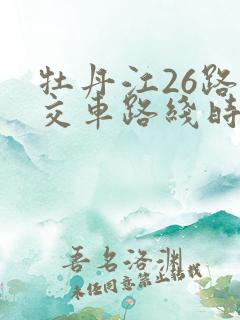 牡丹江26路
交车路线时
吾名洛渊
未经同意禁止转载